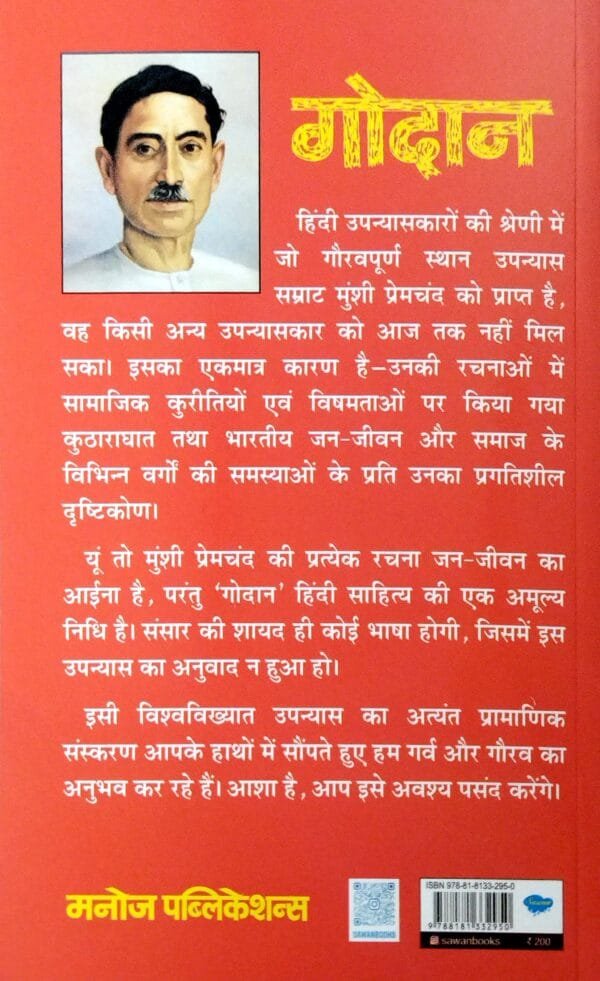 गोदान
हिंदी उपन्यासकारों की श्रेणी में
जो गौरवपूर्ण स्थान उपन्यास
सम्राट मुंशी प्रेमचंद को प्राप्त है,
वह किसी अन्य उपन्यासकार को आज तक नहीं मिल
सका। इसका एकमात्र कारण है–उनकी रचनाओं में
सामाजिक कुरीतियों एवं विषमताओं पर किया गया
कुठाराघात तथा भारतीय जन-जीवन और समाज के
विभिन्न वर्गों की समस्याओं के प्रति उनका प्रगतिशील
दृष्टिकोण।
यूं तो मुंशी प्रेमचंद की प्रत्येक रचना जन-जीवन का
आईना है, परंतु ‘गोदान’ हिंदी साहित्य की एक अमूल्य
निधि है। संसार की शायद ही कोई भाषा होगी, जिसमें इस
उपन्यास का अनुवाद न हुआ हो।
इसी विश्वविख्यात उपन्यास का अत्यंत प्रामाणिक
संस्करण आपके हाथों में सौंपते हुए हम गर्व और गौरव का
अनुभव कर रहे हैं। आशा है, आप इसे अवश्य पसंद करेंगे।
मनोज पब्लिकेशन्स
SAWANBOOKS
ISBN 978-81-8133-295-0
9 788181 332950
sawanbooks
₹ 200
Sawan